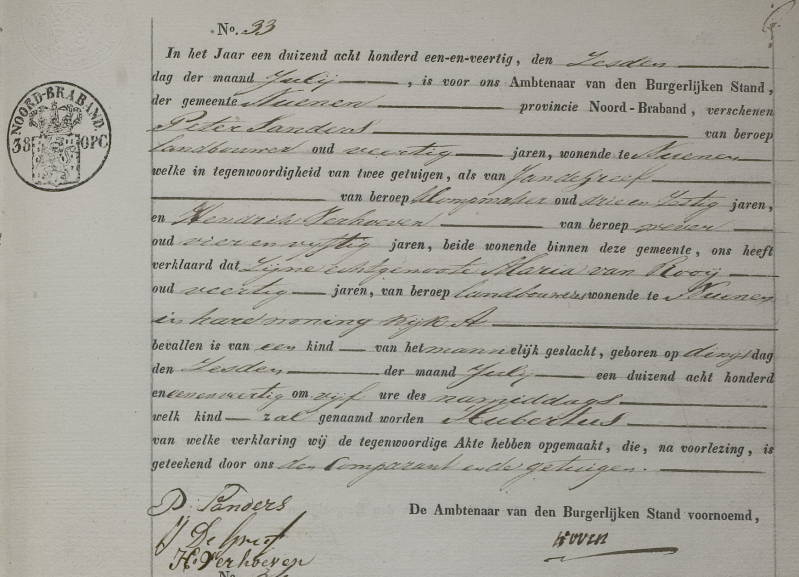 No. 33
In het Jaar een duizend acht honderd een-en-veertig, den Zesden
dag der maand Julij, is voor ons Ambtenaar van den Burgerlijken Stand,
der gemeente Nuenen provincie Noord-Braband, verschenen
Peter Sanders van beroep
landbouwer oud veertig jaren, wonende te Nuenen
welke in tegenwoordigheid van twee getuigen, als van Jan de Greef
van beroep Klompmaker oud drie en Zestig jaren,
en Hendrik Verhoeven van beroep wever
oud vier en vyftig jaren, beide wonende binnen deze gemeente, ons heeft
verklaard dat Zijne echtgenoote Maria van Rooij
oud veertig jaren, van beroep landbouwers wonende te Nuenen
in hare woning wijk A
bevallen is van een kind van het mannelijk geslacht, geboren op dingsdag
den Zesden der maand July een duizend acht honderd
en eenenveertig om vijf ure des namiddags
welk kind zal genaamd worden Hubertus
van welke verklaring wij de tegenwoordige Akte hebben opgemaakt, die, na voorlezing, is
geteekend door ons den Comparant en de getuigen.
P. Sanders
De Ambtenaar van den Burgerlijken Stand voornoemd,
J De Greef
H. Verhoeven
No.
NOORD-BRABAND.
38 OPC